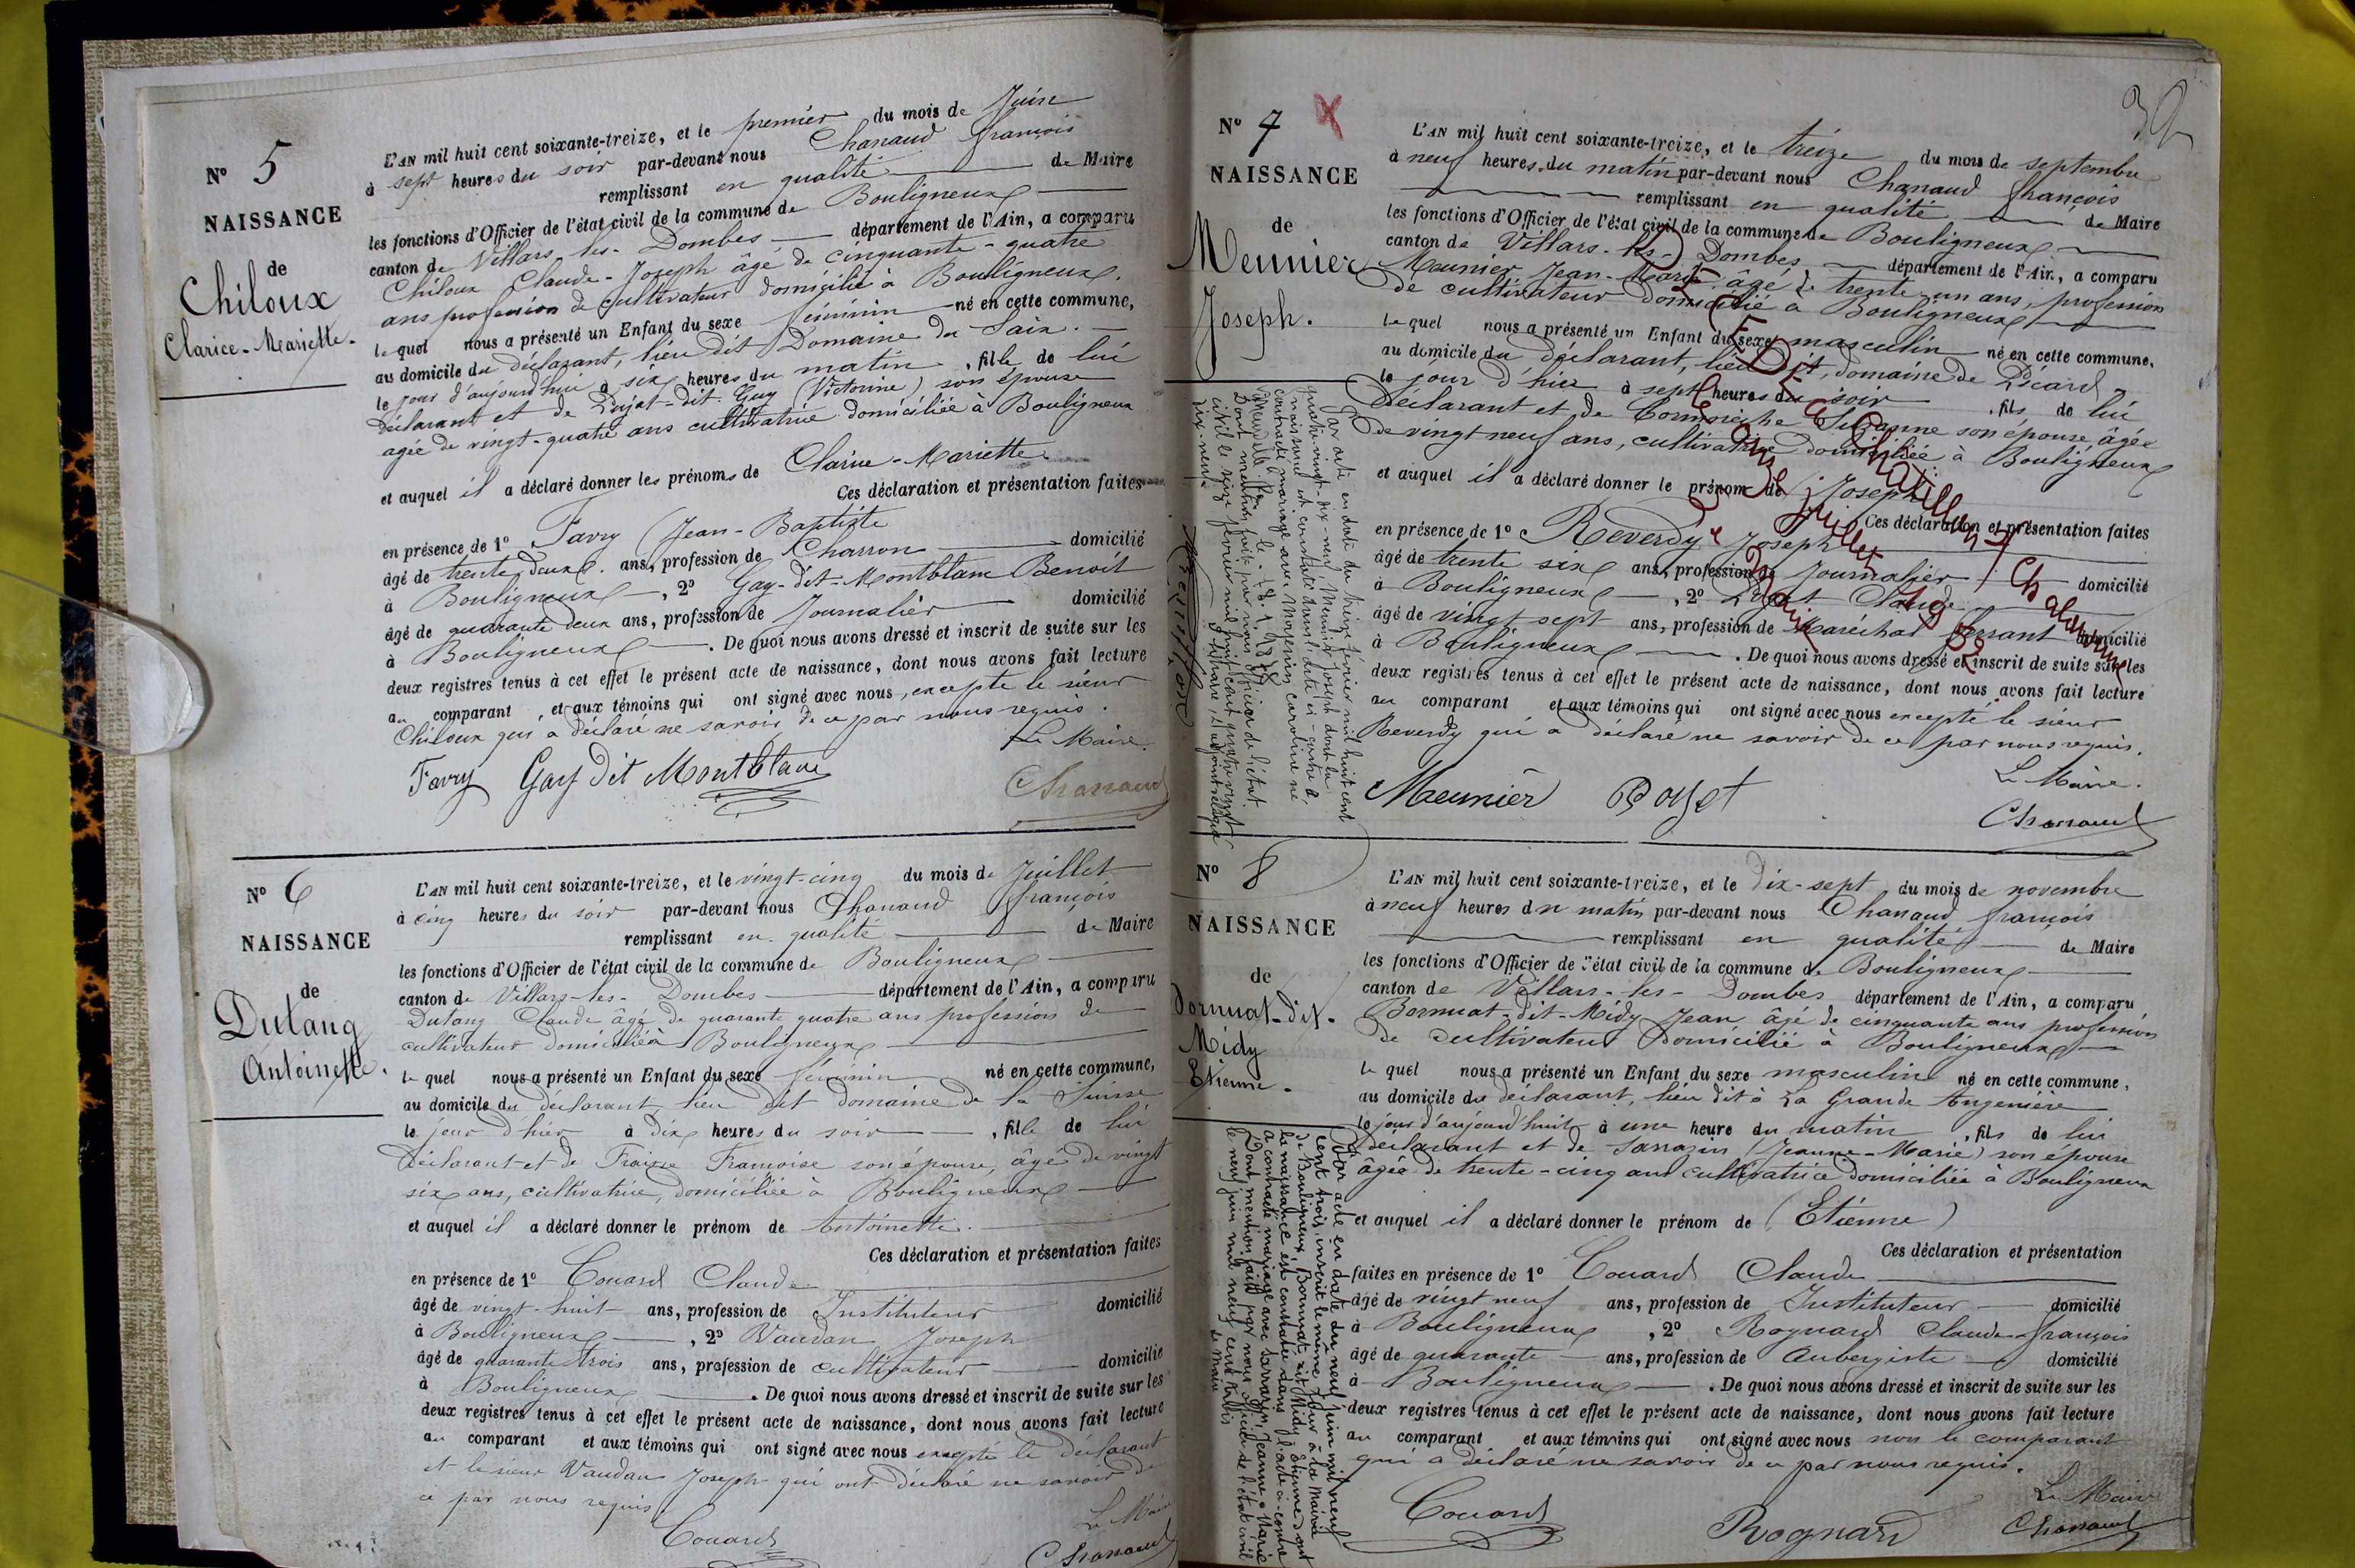 N° 5
NAISSANCE
de
Chiloux
Clarice-Mariette.
L'AN mil huit cent soixante-treize, et le premier du mois de Juin
à sept heures du soir par-devant nous Chanaud françois
remplissant en qualité de Maire
les fonctions d'Officier de l'état civil de la commune de Bouligneux
canton de Villars-les-Dombes département de l'Ain, a comparu
Chiloux Claude-Joseph âgé de cinquante-quatre
ans profession de cultivateur domicilié à Bouligneux.
lequel nous a présenté un Enfant du sexe féminin né en cette commune,
au domicile du déclarant, lieu dit Domaine du Saix.
le jour d'aujourd'hui à six heures du matin, fille de lui
déclarant et de Pujat-dit-Guy (Victorine) son épouse
agée de vingt-quatre ans cultivatrice domiciliée à Bouligneux
et auquel il a déclaré donner les prénoms de Clarice-Mariette.
Ces déclaration et présentation faites
en présence de 1° Favry (Jean-Baptiste
âgé de trente deux. ans, profession de Charron domicilié
à Bouligneux, 2° Gay-dit-Montblanc Benoît
âgé de quarante deux ans, profession de Journalier domicilié
à Bouligneux. De quoi nous avons dressé et inscrit de suite sur les
deux registres tenus à cet effet le présent acte de naissance, dont nous avons fait lecture
au comparant, et aux témoins qui ont signé avec nous, excepté le sieur
Chiloux qui a déclaré ne savoir de ce par nous requis.
Le Maire.
Favry Gay Dit Montblanc Chanaud
N° 6
NAISSANCE
de
Dutang
Antoinette.
L'AN mil huit cent soixante-treize, et le vingt-cinq du mois de Juillet
à cinq heures du soir par-devant nous Chanaud françois
remplissant en qualité de Maire
les fonctions d'Officier de l'état civil de la commune de Bouligneux
canton de Villars-les-Dombes département de l'Ain, a comparu
Dutang Claude âgé de quarante quatre ans profession de
cultivateur domicilié à Bouligneux
lequel nous a présenté un Enfant du sexe féminin né en cette commune,
au domicile du déclarant lieu dit domaine de la Suisse
le jour d'hier à dix heures du soir, fille de lui
déclarant et de Fraisse Françoise son épouse, âgé de vingt
six ans, cultivatrice, domiciliée à Bouligneux
et auquel il a déclaré donner le prénom de Antoinette.
Ces déclaration et présentation faites
en présence de 1° Couard Claude
âgé de vingt-huit ans, profession de Instituteur domicilié
à Bouligneux, 2° Vaudan Joseph
âgé de quarante trois ans, profession de cultivateur domicilié
à Bouligneux. De quoi nous avons dressé et inscrit de suite sur les
deux registres tenus à cet effet le présent acte de naissance, dont nous avons fait lecture
au comparant et aux témoins qui ont signé avec nous excepté le déclarant
et le sieur Vaudan Joseph qui ont déclaré ne savoir de
ce par nous requis.
Le Maire
Couard Chanaud
32
N° 7 X
NAISSANCE
de
Meunier
Joseph.
L'AN mil huit cent soixante-treize, et le treize du mois de septembre
à neuf heures du matin par-devant nous Chanaud françois
remplissant en qualité de Maire
les fonctions d'Officier de l'état civil de la commune de Bouligneux
canton de Villars-les-Dombes département de l'Ain, a comparu
Meunier Jean-Marie âgé de trente-un ans, profession
de cultivateur domicilié à Bouligneux
lequel nous a présenté un Enfant du sexe masculin né en cette commune.
au domicile du déclarant, lieu dit, domaine de Picard
le jour d'hier à sept heures du soir, fils de lui
déclarant et de Cormorèche Suzanne son épouse, âgée
de vingt neuf ans, cultivatrice domiciliée à Bouligneux
et auquel il a déclaré donner le prénom de Joseph
Ces déclaration et présentation faites
en présence de 1° Reverdy Joseph
âgé de trente six ans, profession de Journalier domicilié
à Bouligneux, 2° Claude
âgé de vingt sept ans, profession de Maréchal ferrant domicilié
à Bouligneux. De quoi nous avons dressé et inscrit de suite sur les
deux registres tenus à cet effet le présent acte de naissance, dont nous avons fait lecture
au comparant et aux témoins qui ont signé avec nous excepté le sieur
Reverdy qui a déclaré ne savoir de ce par nous requis.
Le Maire.
Meunier Chanaud
DÉCÉDÉ à Chatillon / Chalaronne
le onze juillet 1952
Le Maire
Par acte en date du treize février mil huit cent
quatre-vingt-dix-neuf, Meunier Joseph dont la
naissance est constatée dans l'acte ci-contre a
contracté mariage avec Moyenin Caroline ne
Dont mention faite par nous officier de l'état
civil le seize février mil huit cent quatre vingt
dix-neuf.
N° 8
NAISSANCE
de
Bornuat-dit-
Midy
Etienne.
L'AN mil huit cent soixante-treize, et le dix-sept du mois de novembre
à neuf heures du matin par-devant nous Chanaud françois
remplissant en qualité de Maire
les fonctions d'Officier de l'état civil de la commune de Bouligneux
canton de Villars-les-Dombes département de l'Ain, a comparu
Bornuat-dit-Midy Jean âgé de cinquante ans profession
de cultivateur domicilié à Bouligneux
lequel nous a présenté un Enfant du sexe masculin né en cette commune,
au domicile du déclarant, lieu dit à La Grande Angenière
le jour d'aujourd'hui à une heure du matin, fils de lui
déclarant et de Sarrazin (Jeanne-Marie) son épouse
âgée de trente-cinq ans cultivatrice domiciliée à Bouligneux
et auquel il a déclaré donner le prénom de (Etienne)
Ces déclaration et présentation
faites en présence de 1° Couard Claude
âgé de vingt neuf ans, profession de Instituteur domicilié
à Bouligneux, 2° Rognard Claude-françois
âgé de quarante ans, profession de Aubergiste domicilié
à Bouligneux. De quoi nous avons dressé et inscrit de suite sur les
deux registres tenus à cet effet le présent acte de naissance, dont nous avons fait lecture
au comparant et aux témoins qui ont signé avec nous non le comparant
qui a déclaré ne savoir de ce par nous requis.
Le Maire
Couard Rognard Chanaud
Par acte en date du neuf juin mil neuf
cent trois, inscrit le même jour à la mairie
de Bouligneux, Bornuat dit Midy Etienne dont
la naissance est constatée dans l'acte ci-contre
a contracté mariage avec Sarrazin Jeanne-Marie
Dont mention faite par nous officier de l'état civil
le neuf juin mil neuf cent trois
Le Maire